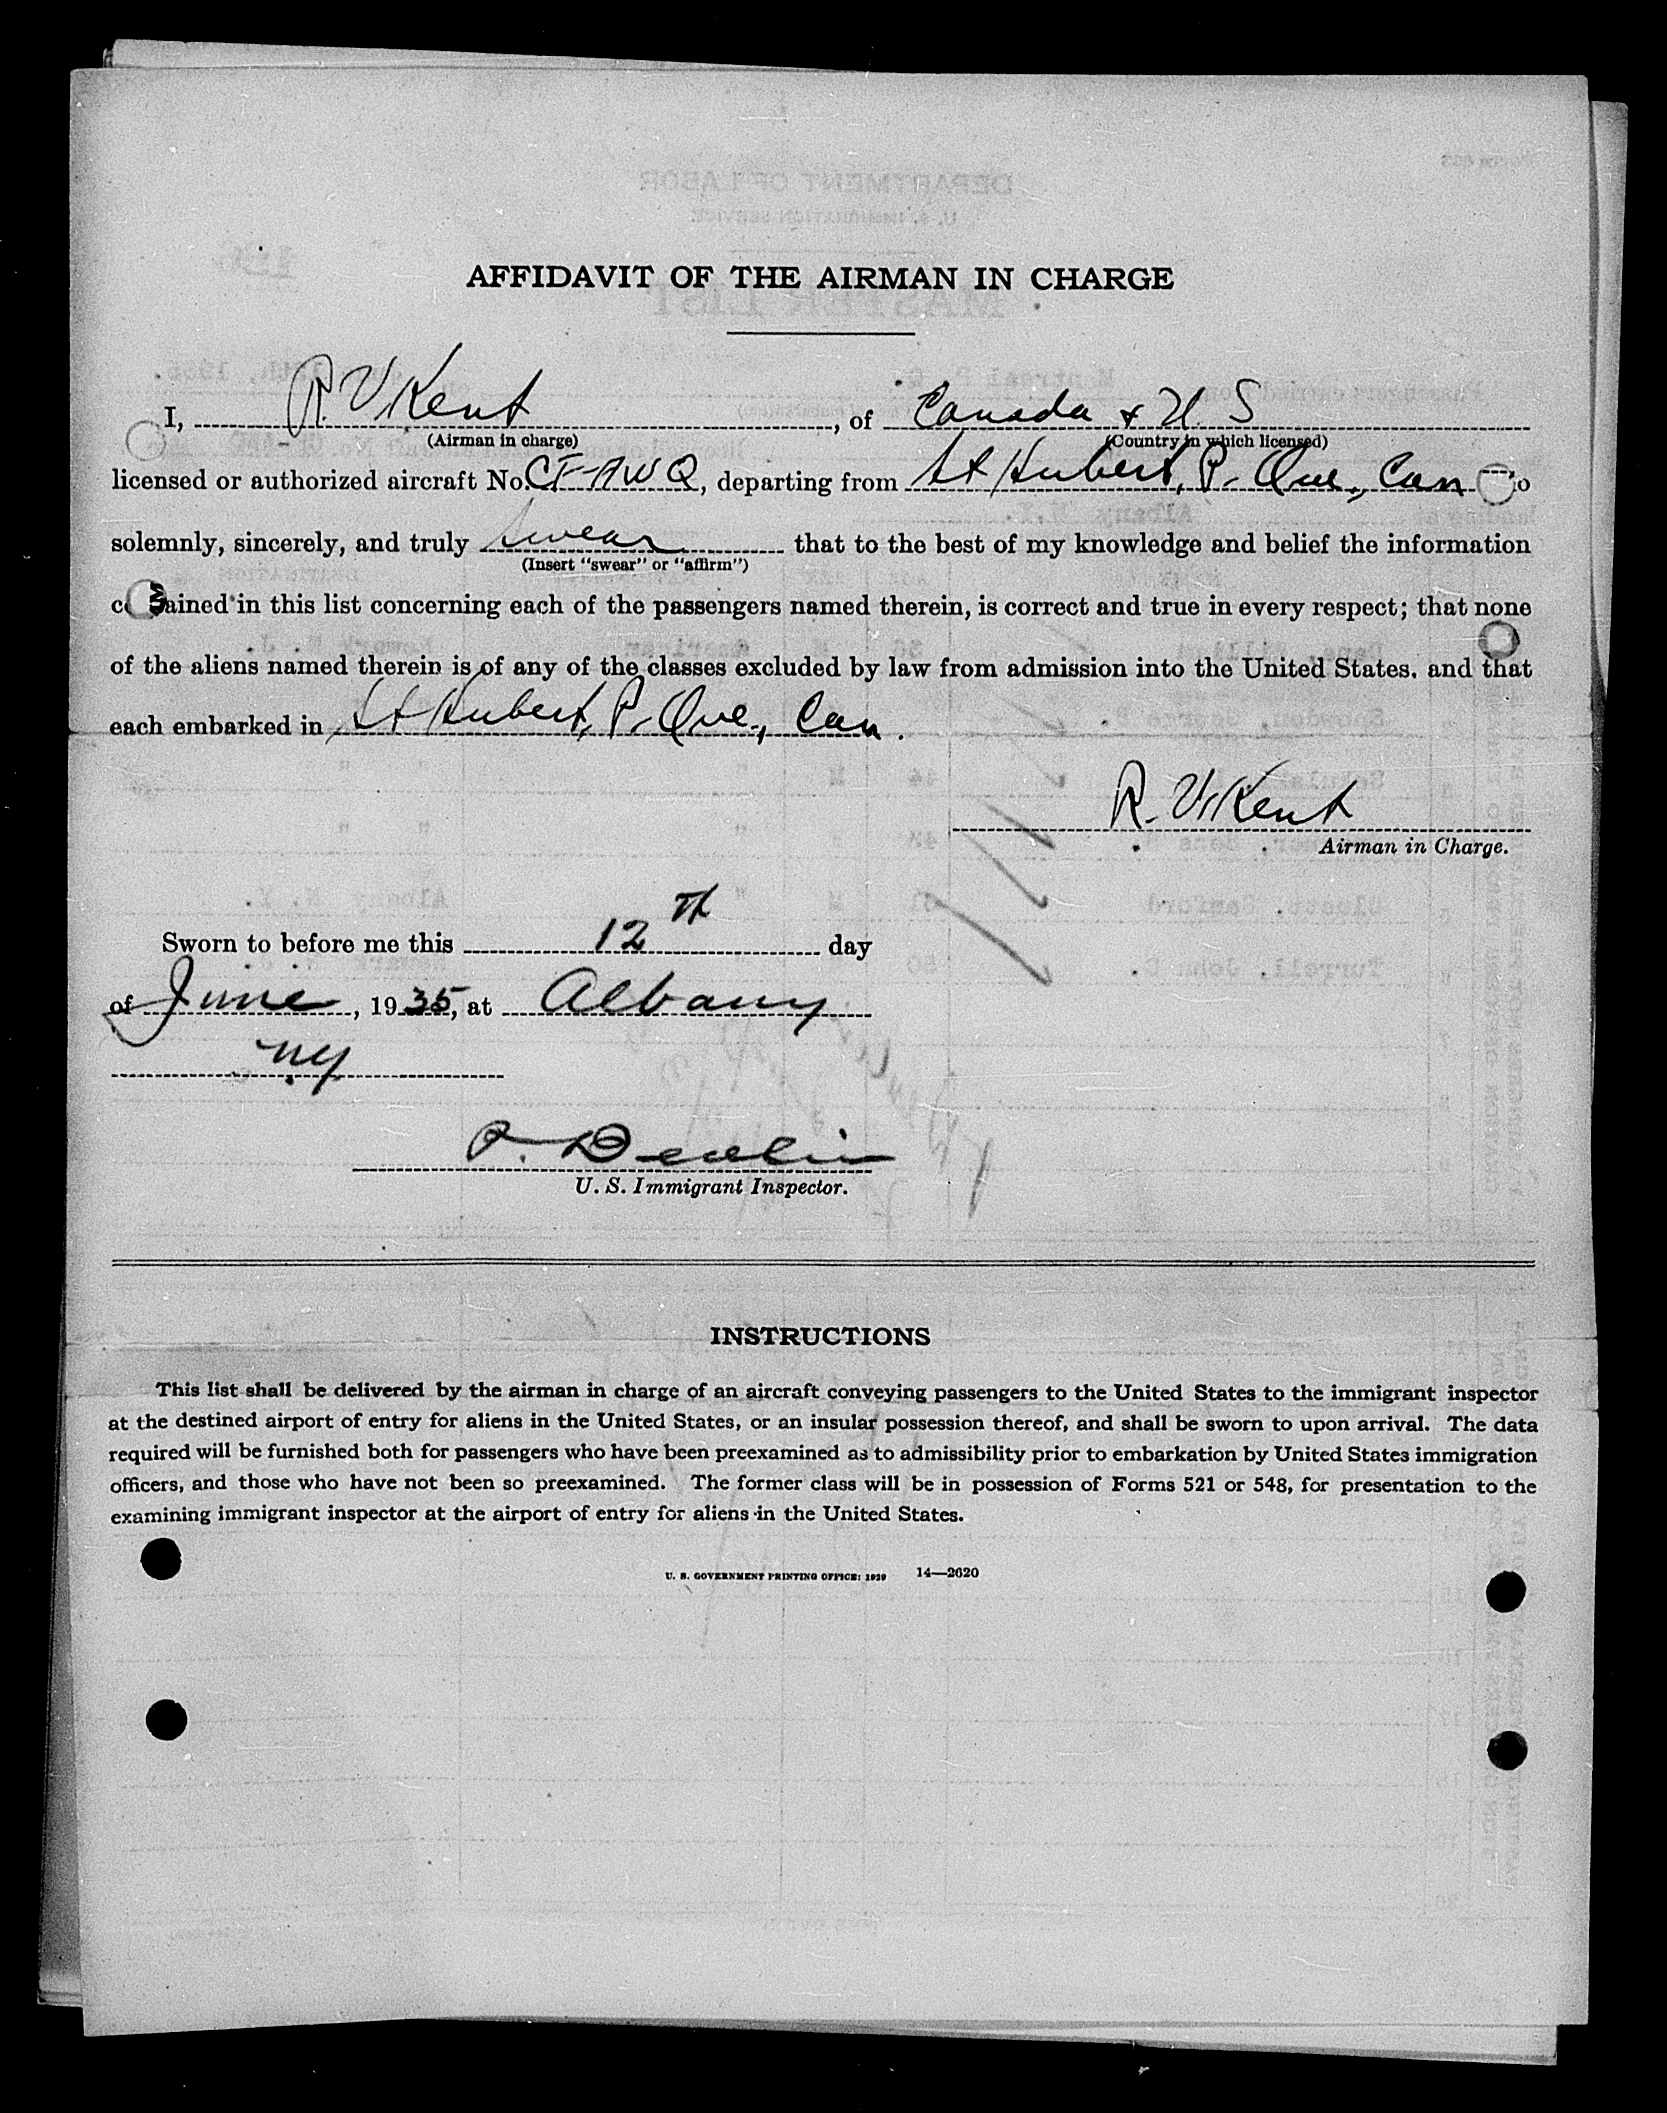 AFFIDAVIT OF THE AIRMAN IN CHARGE
I, R. V. Kent, of Canada & U S
(Airman in charge) (Country in which licensed)
licensed or authorized aircraft No. CF-AWQ, departing from St Hubert, P. Que., Can o
solemnly, sincerely, and truly swear that to the best of my knowledge and belief the information
(Insert "swear" or "affirm")
c ained in this list concerning each of the passengers named therein, is correct and true in every respect; that none
of the aliens named therein is of any of the classes excluded by law from admission into the United States, and that
each embarked in St Hubert, P. Que., Can.
R. V. Kent
Airman in Charge.
Sworn to before me this 12th day
of June, 1935, at Albany
NY
Devlin
U. S. Immigrant Inspector.
INSTRUCTIONS
This list shall be delivered by the airman in charge of an aircraft conveying passengers to the United States to the immigrant inspector
at the destined airport of entry for aliens in the United States, or an insular possession thereof, and shall be sworn to upon arrival. The data
required will be furnished both for passengers who have been preexamined as to admissibility prior to embarkation by United States immigration
officers, and those who have not been so preexamined. The former class will be in possession of Forms 521 or 548, for presentation to the
examining immigrant inspector at the airport of entry for aliens in the United States.
U. S. GOVERNMENT PRINTING OFFICE: 1929 14—2620